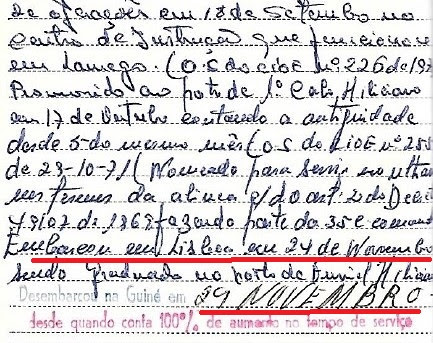 de operações em 18 de Setembro no
Centro de Instrução que funcionou
em Lamego. (O.S. do CIOE nº 226 de 197
Promovido ao posto de 1º Cabo Miliciano
em 17 de Outubro contando a antiguidade
desde 5 do mesmo mês (O.S. do CIOE nº 255
de 28-10-71( Nomeado para servir no ultra
nos termos da alinea c/ do art. 2 do Decreto
49107 de 1969 fazendo parte da 35ª C comand
Embarcou em Lisboa em 24 de Novembro
sendo graduado no posto de Furriel Miliciano
Desembarcou na Guiné em 29 NOVEMBRO
desde quando conta 100% de aumento no tempo de serviço